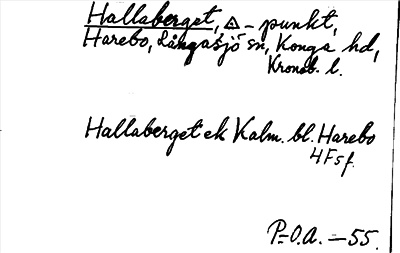 Hallaberget, △ - punkt,
Harebo, Långasjö sn, Konga hd,
Kronob. l.
Hallaberget ek Kalm. bl. Harebo
4F5f.
P-O.A. - 55.